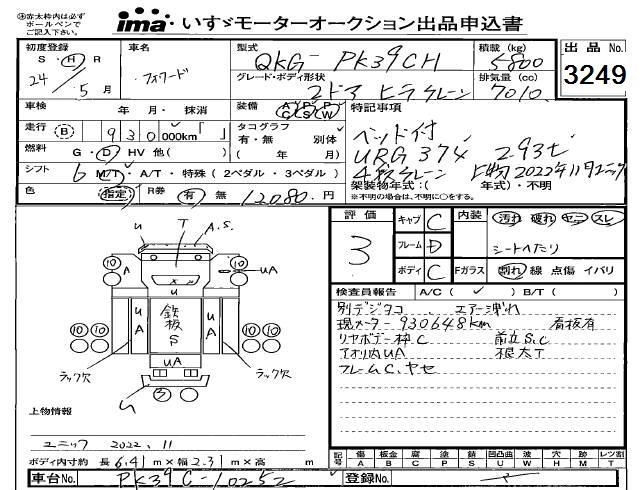 ㊟赤太枠内は必ず
ボールペンで
ご記入下さい。
ima いすゞモーターオークション出品申込書
初度登録 車名 型式 積載(kg) 出品No.
S・H・R フォワード QKG-PK39CH 5800 3249
24年 5月 グレード・ボディ形状 排気量(cc)
2ドア ヒラクレーン 7010
車検 年 月・抹消 装備 A/C P/S P/W 特記事項
走行 B 930000km「 」 タコグラフ 有・無 別体 ベッド付
燃料 G・D・HV 他( ) ( 年 月) URG374 2.93t
シフト 6 M/T・A/T・特殊(2ペダル・3ペダル) 4段クレーン 上物2022年11月ユニック
架装物年式:( 年式)・不明
色 指定 R券 有 無 12080円 ※不明の場合は、不明に〇をする。
評価 3 キャブ C 内装 汚れ 破れ ヤニ スレ
フレーム D シートヘたり
ボディ C Fガラス 割れ 線 点傷 イバリ
検査員報告 A/C( ✓ ) B/T( )
別デジタコ エアー洩れ
現メーター930648km 看板有
リヤボデー枠C 前立S,C
アオリ内UA 根太T
フレームC,ヤセ
u T A.S.
10 A 10 uA
u
10 10 u A 鉄板S u A 10 10
uA
ラック欠 ラック欠
3
上物情報
ユニック 2022.11
ボディ内寸約 長6.41m×幅2.31m×高 m
記号 傷 A 板金 B 腐 C 塗 P 錆 S 凹凸曲 U 波 W 穴 H 跡 M レツ割 T
車台No. PK39C-10252 登録No.